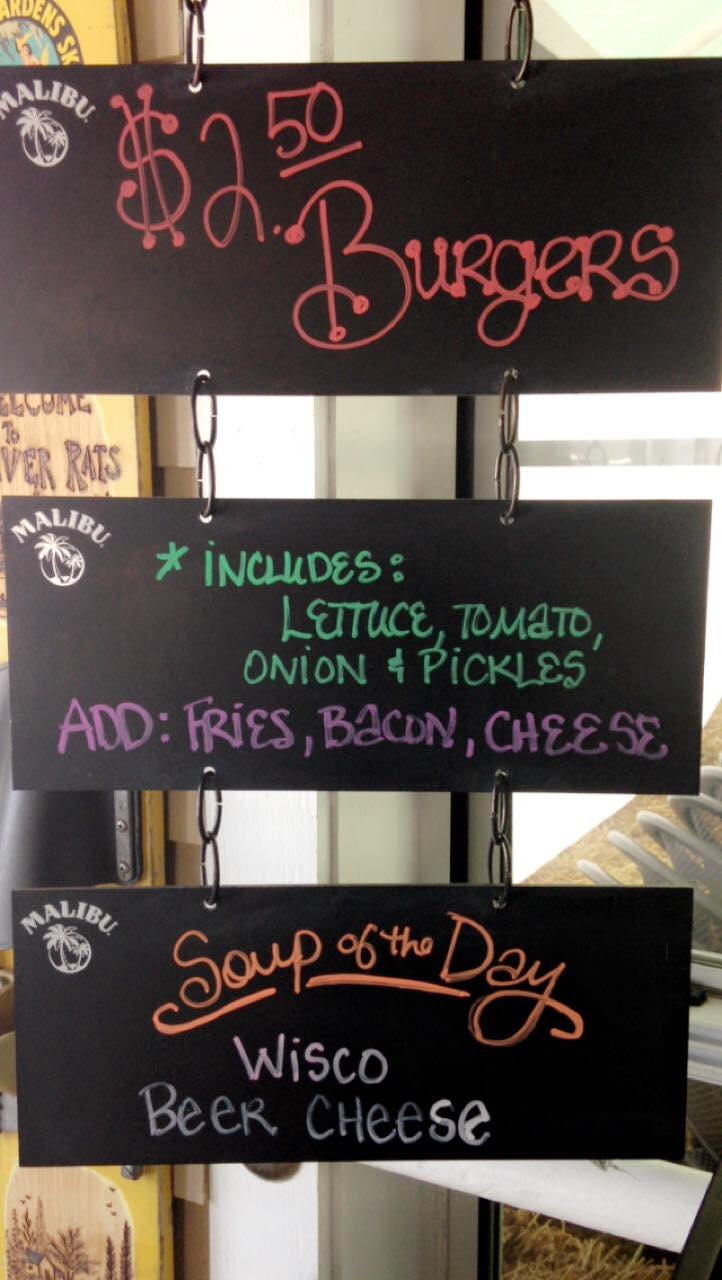 ARDENS SK
MALIBU
$2.50
BURGERS
ELCOME
TO
VER RATS
MALIBU
* INCLUDES:
LETTUCE, TOMATO,
ONION & PICKLES
ADD: FRIES, BACON, CHEESE
MALIBU
Soup of the Day
WISCO
BEER CHEESE